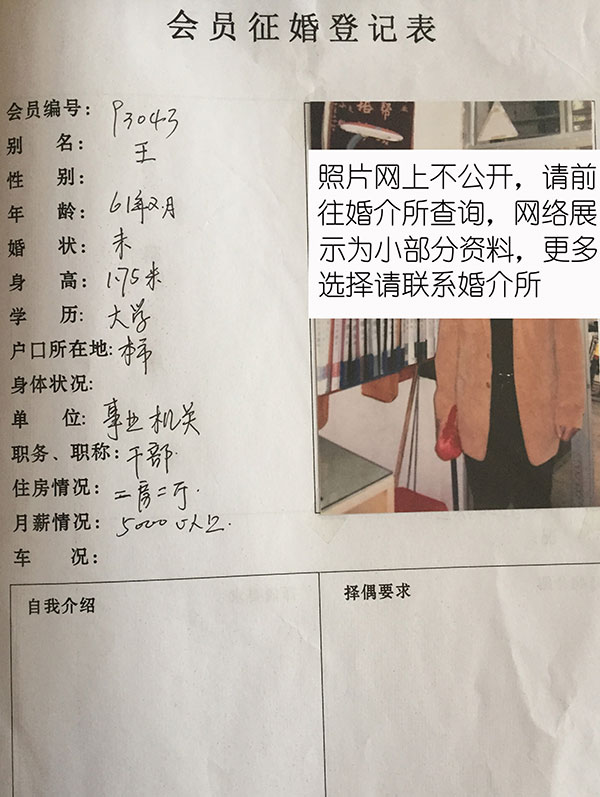 会员征婚登记表
会员编号: P3043
别 名: 王
性 别:
年 龄: 61年2月
婚 状: 未
身 高: 1.75米
学 历: 大学
户口所在地: 本市
身体状况:
单 位: 事业机关
职务、职称: 干部
住房情况: 二房二厅.
月薪情况: 5000以上.
车 况:
照片网上不公开，请前
往婚介所查询，网络展
示为小部分资料，更多
选择请联系婚介所
自我介绍
择偶要求